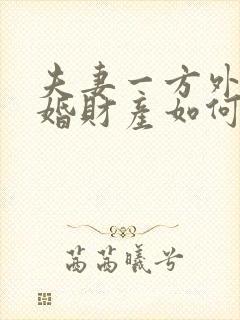 夫妻一方外
婚財產如何
茜茜曦兮